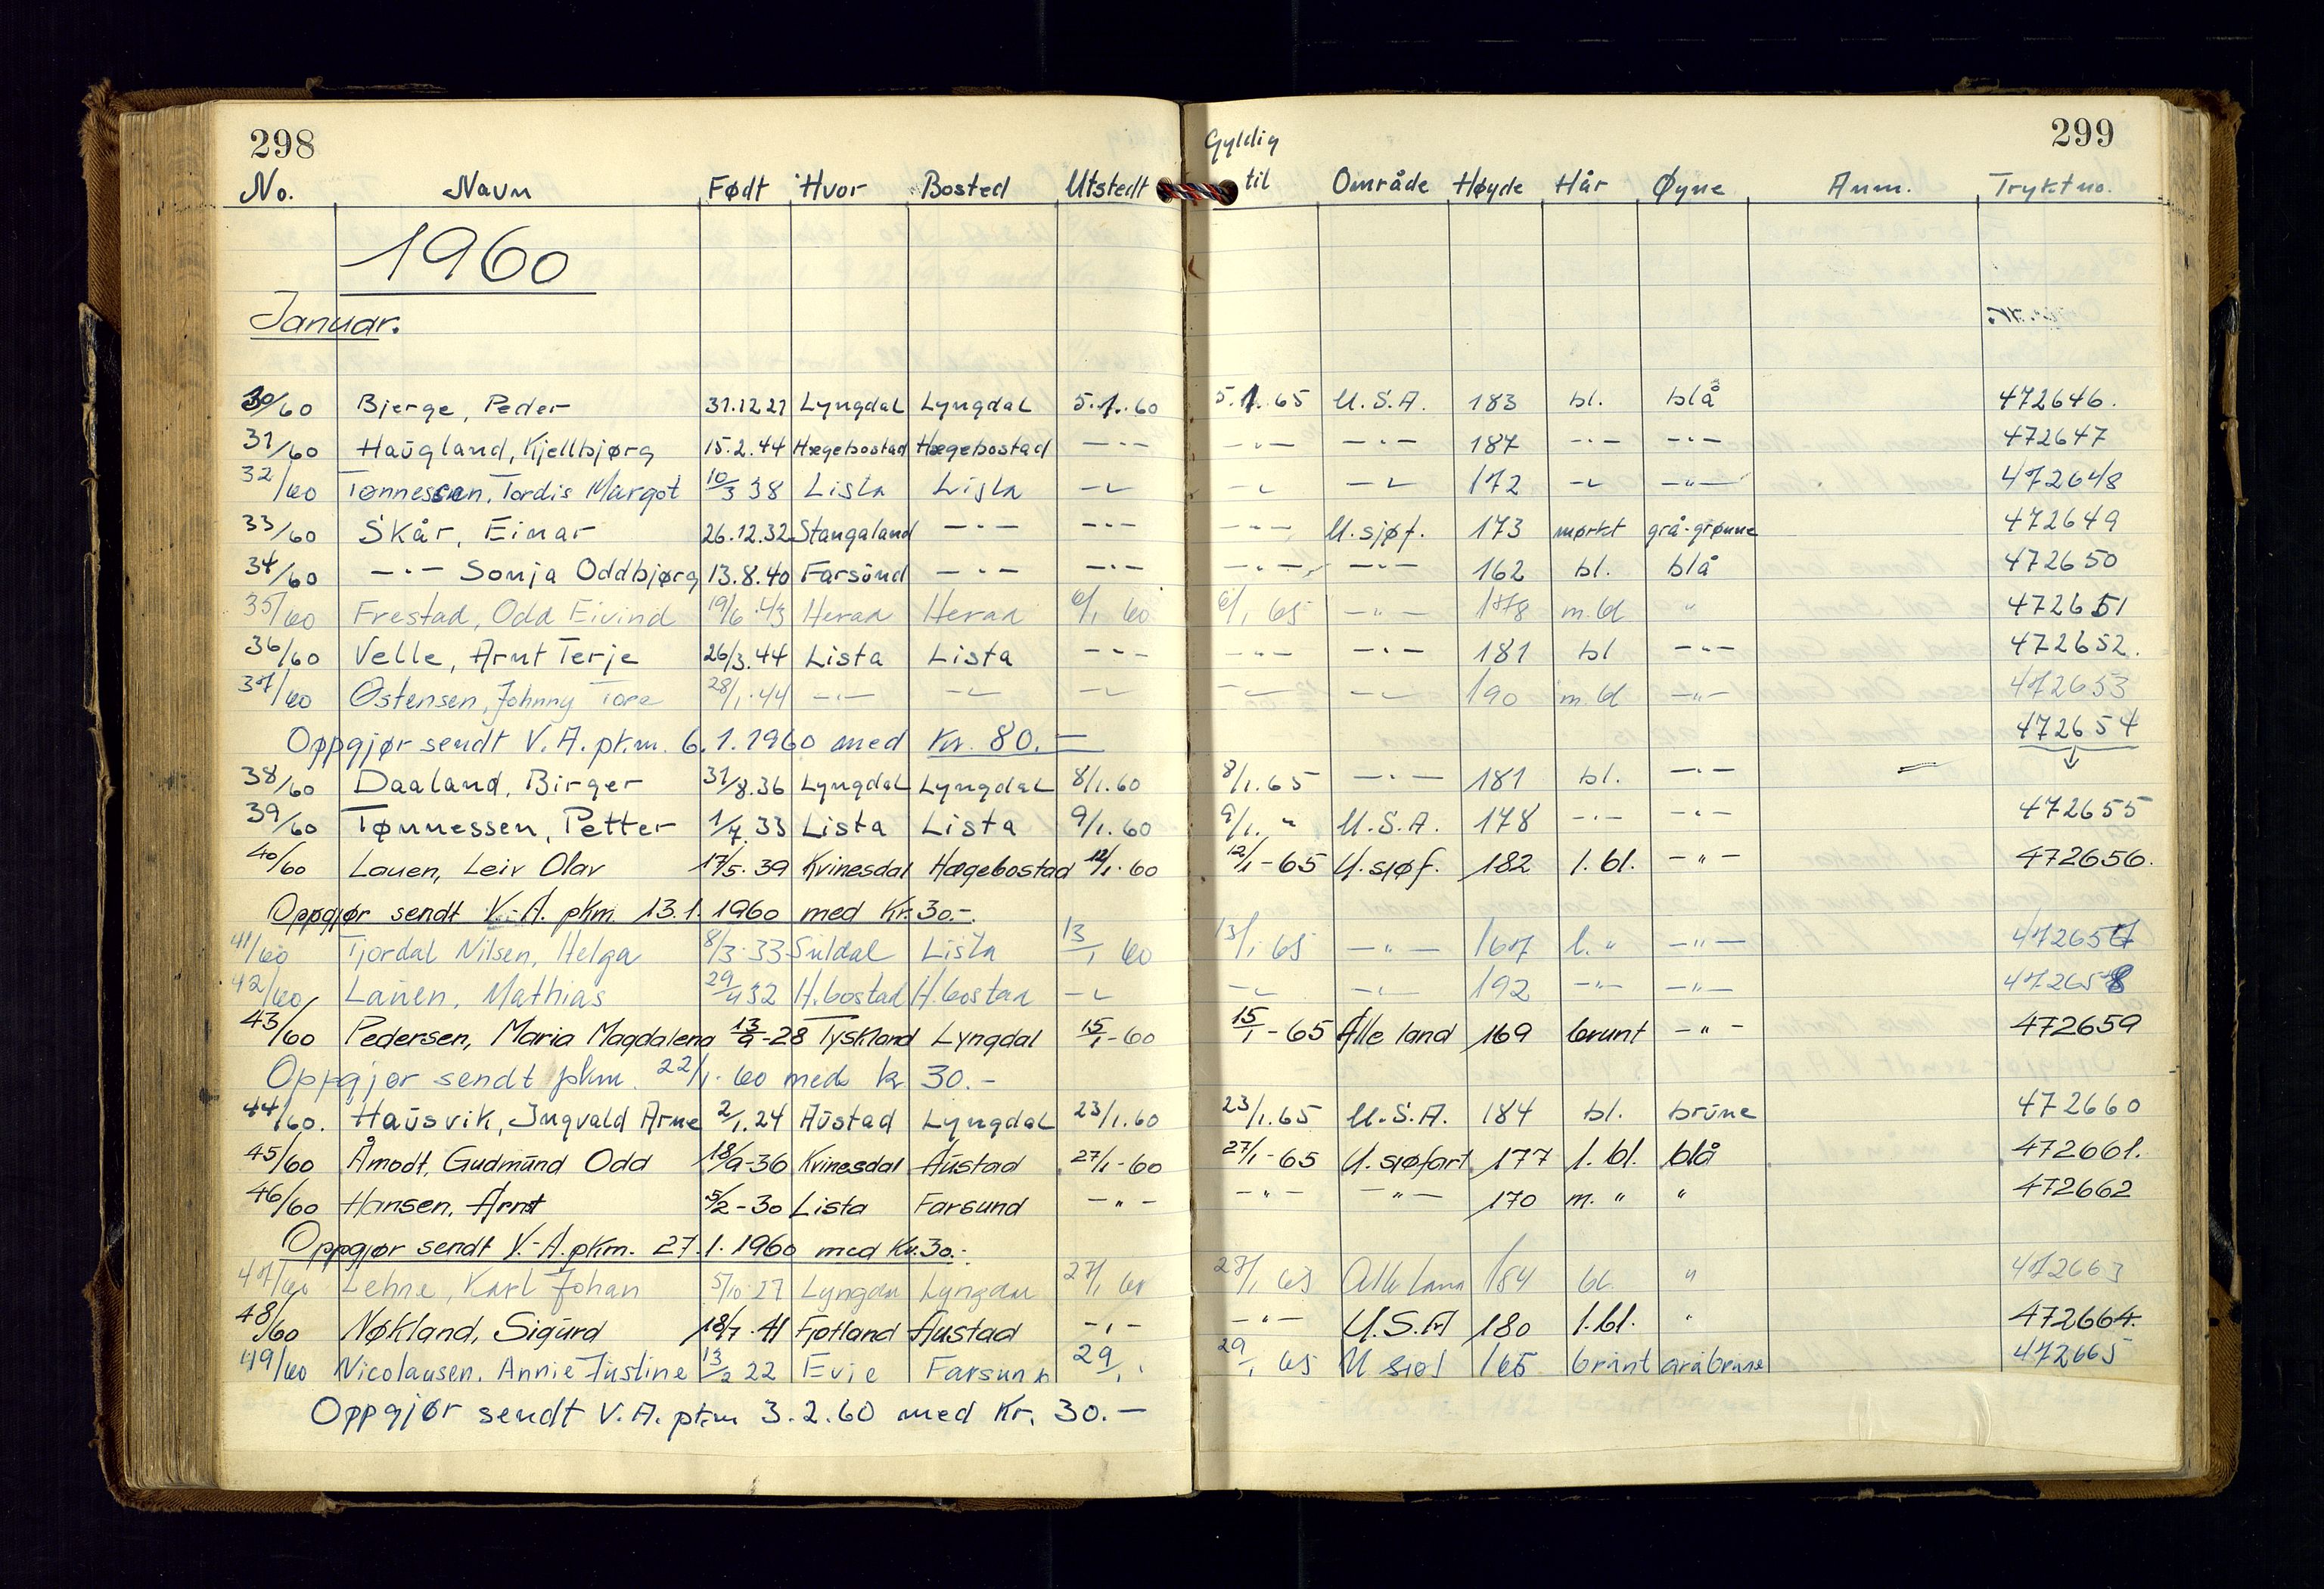 298
299
No. Navn Født Hvor Bosted Utstedt Gyldig til Område Høyde Hår Øyne Anm. Trykt no.
1960
Januar.
30/60 Bjerge, Peder 31.12.27 Lyngdal Lyngdal 5.1.60 5.1.65 U.S.A. 183 bl. blå 472646.
31/60 Haugland, Kjellbjørg 15.2.44 Hægebostad Hægebostad —"— —"— —"— 187 —"— —"— 472647
32/60 Tønnessen, Tordis Margot 10/3 38 Lista Lista —"— —"— —"— 172 —"— —"— 472648
33/60 Skår, Einar 26.12.32 Stangaland —"— —"— —"— U.sjøf. 173 mørkt grå-grønne 472649
34/60 —"— Sonja Oddbjørg 13.8.40 Farsund —"— —"— —"— —"— 162 bl. blå 472650
35/60 Frestad, Odd Eivind 19/6.43 Herad Herad 6/1 60 6/1 65 —"— 178 m.bl " 472651
36/60 Velle, Arnt Terje 26/3.44 Lista Lista —"— —"— —"— 181 bl —"— 472652.
37/60 Østensen, Johnny Tore 28/1.44 —"— —"— —"— —"— —"— 190 m.bl —"— 472653
Oppgjør sendt V.A. pkm. 6.1.1960 med Kr. 80.— 472654
38/60 Daaland, Birger 31/8.36 Lyngdal Lyngdal 8/1.60 8/1.65 —"— 181 bl. —"—
39/60 Tønnessen, Petter 1/7.33 Lista Lista 9/1.60 9/1. " U.S.A. 178 —"— —"— 472655
40/60 Lauen, Leiv Olav 17/5.39 Kvinesdal Hægebostad 12/1.60 12/1-65 U.sjøf. 182 l.bl. —"— 472656.
Oppgjør sendt V.-A. pkm. 13.1.1960 med Kr. 30.-.
41/60 Tjordal Nilsen, Helga 8/3.33 Suldal Lista 13/1 60 13/1 65 —"— 167 l. " —"— 472657
42/60 Lauen, Mathias 29/4 32 H.bostad H.bostad —"— —"— —"— 192 —"— —"— 472658
43/60 Pedersen, Maria Magdalena 13/9-28 Tyskland Lyngdal 15/1-60 15/1-65 Alle land 169 brunt —"— 472659
Oppgjør sendt pkm. 22/1.60 med kr 30.-
44/60. Hausvik, Ingvald Arne 2/1.24 Austad Lyngdal 23/1.60 23/1.65 U.S.A. 184 bl. brune 472660
45/60 Åmodt, Gudmund Odd 18/9-36 Kvinesdal Austad 27/1-60 27/1-65 U.sjøfart 177 l.bl. blå 472661.
46/60 Hansen, Arnt 5/2-30 Lista Farsund —"— —"— —"— 170 m. " " 472662
Oppgjør sendt V.-A. pkm. 27.1.1960 med Kr. 30.-
47/60 Lehne, Karl Johan 5/10 27 Lyngdal Lyngdal 27/1 60 27/1 65 Alle land 184 bl. " 472663
48/60 Nøkland, Sigurd 18/7.41 Fjotland Austad —"— —"— U.S.A 180 l.bl. " 472664.
49/60 Nicolausen, Annie Justine 13/2 22 Evje Farsund 29/1 " 29/1 65 U sjøf 165 brunt gråbrune 472665
Oppgjør sendt V.A. pkm 3.2.60 med Kr. 30.—